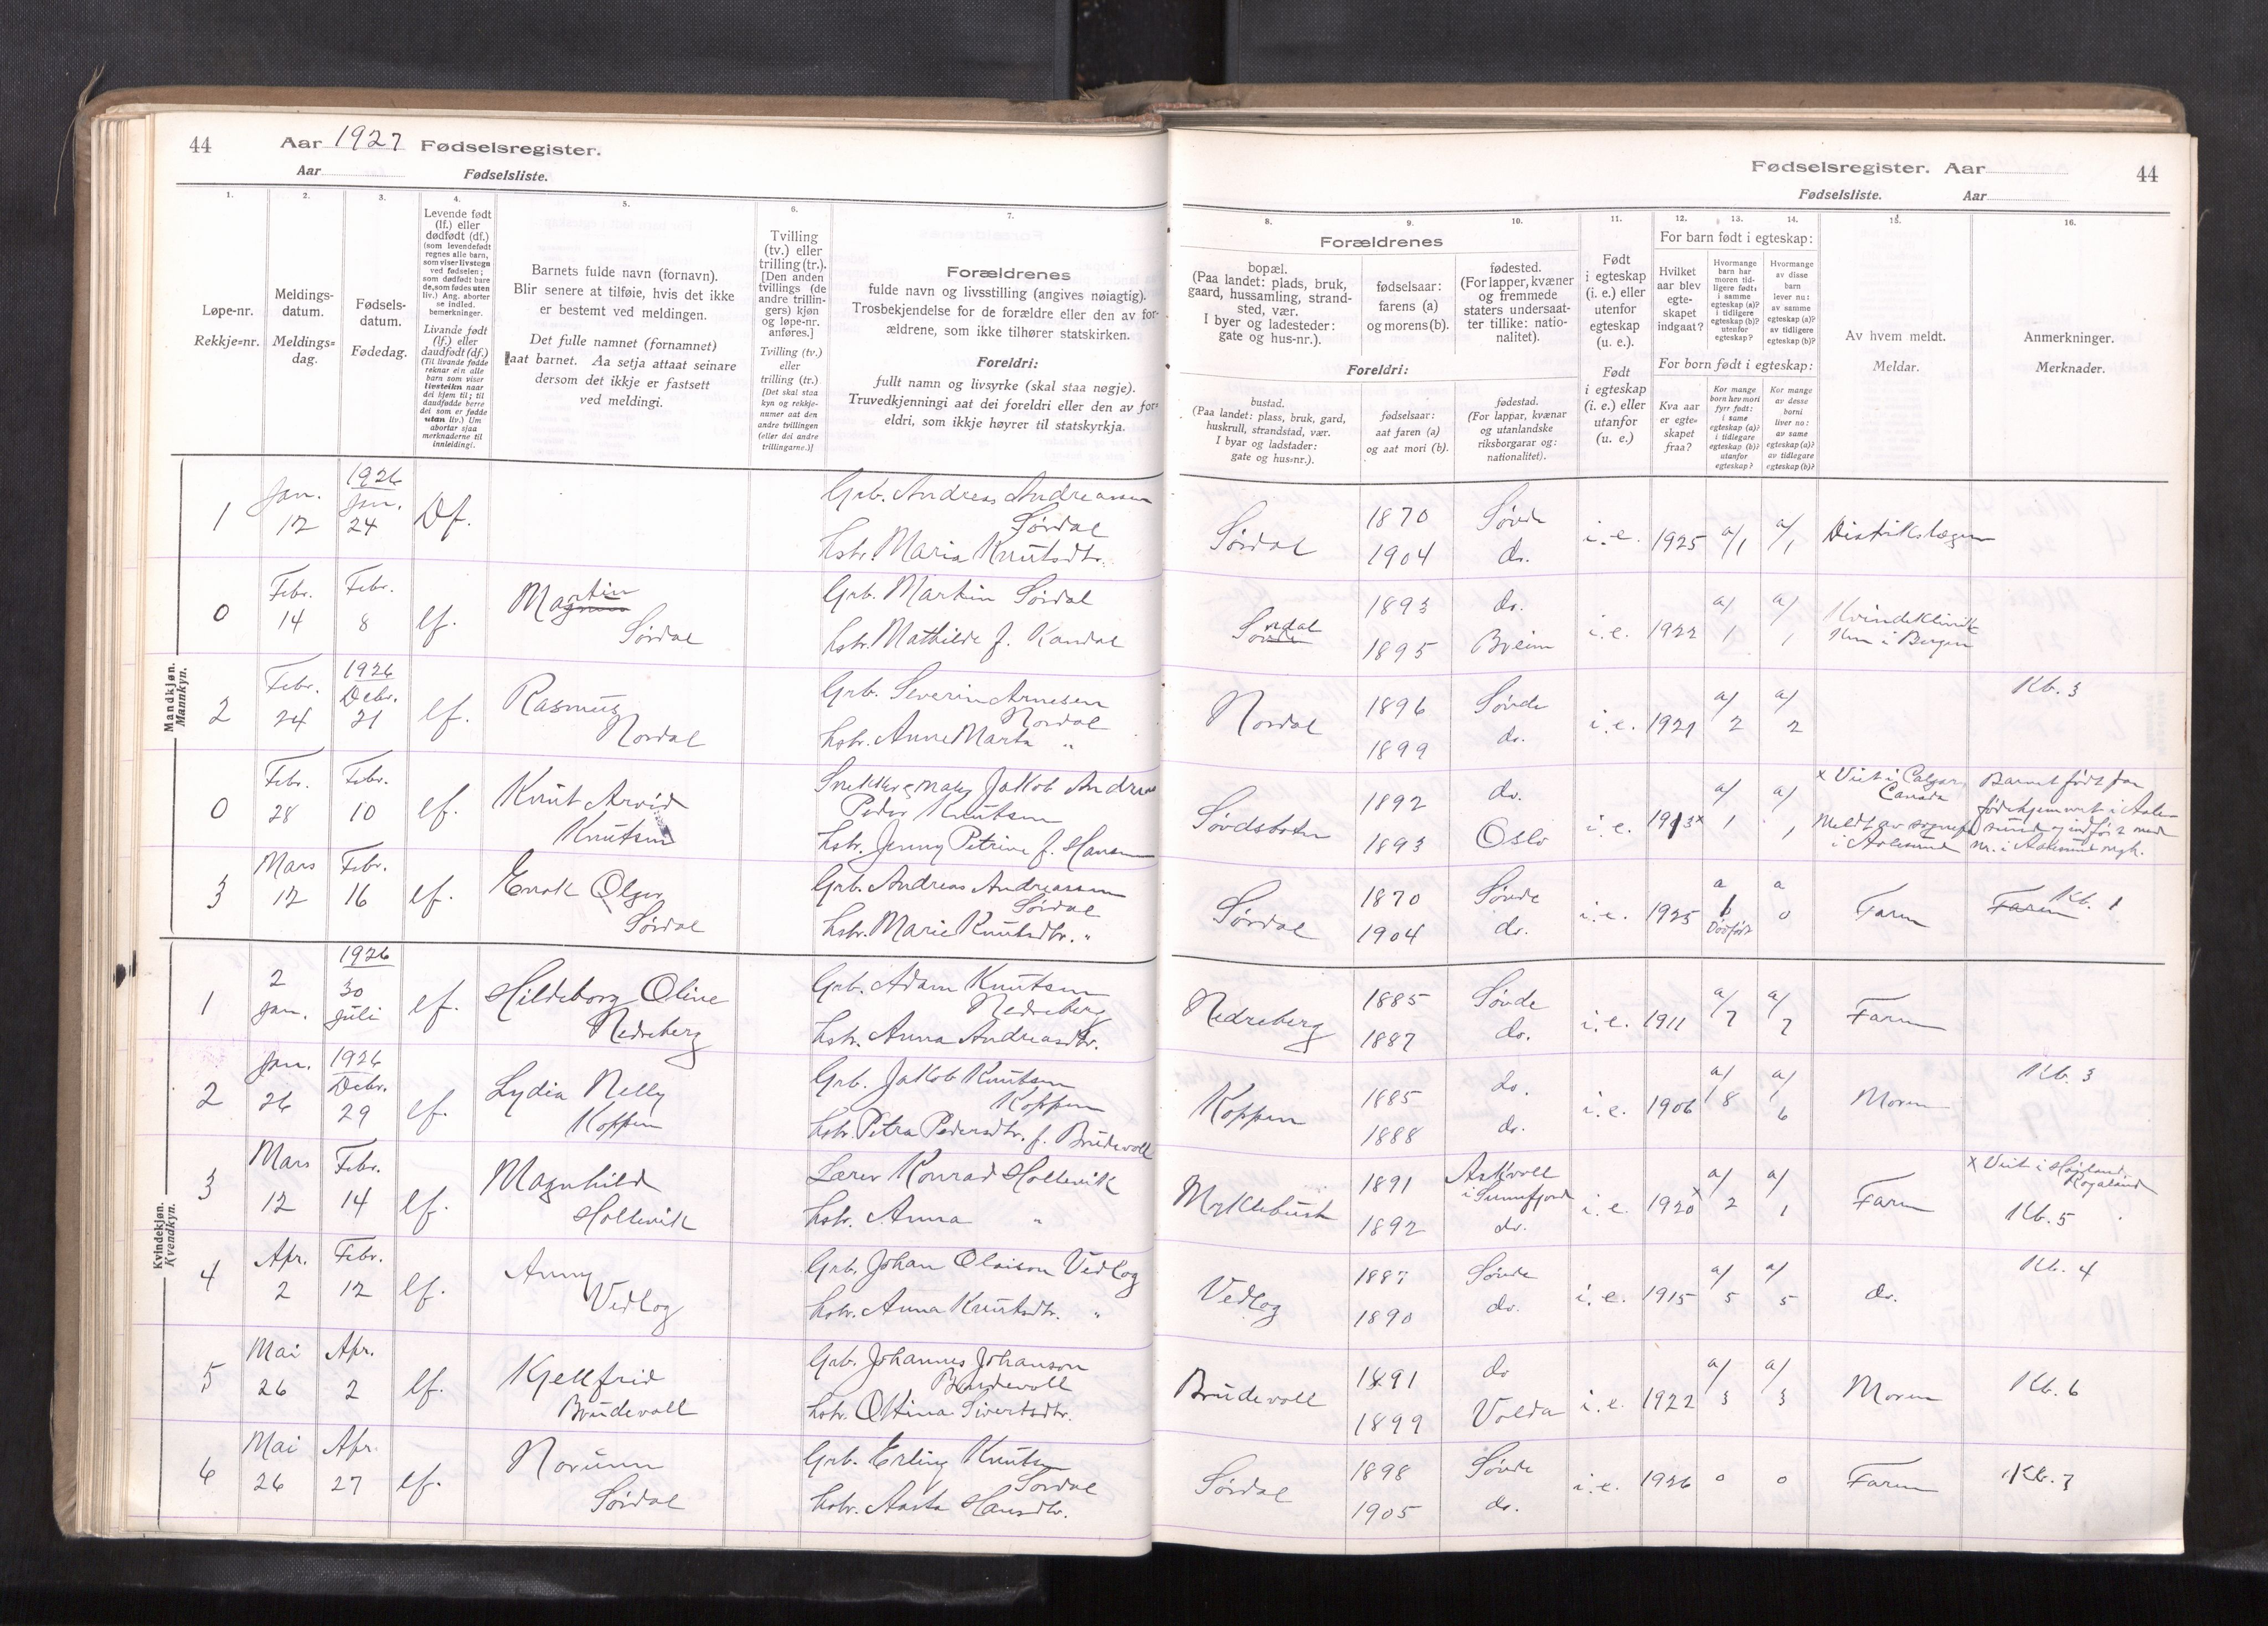 44 Aar 1927 Fødselsregister.
Aar Fødselsliste.
Fødselsregister. Aar 44
Fødselsliste. Aar
1. 2. 3. 4. 5. 6. 7.
Løpe-nr.
Rekkje=nr.
Meldings-
datum.
Meldings=
dag.
Fødsels-
datum.
Fødedag.
Levende født
(lf.) eller
dødfødt (df.)
(som levendefødt
regnes alle barn,
som viser livstegn
ved fødselen;
som dødfødt bare
de, som fødes uten
liv.) Ang. aborter
se indled.
bemerkninger.
Livande født
(lf.) eller
daudfødt (df.)
(Til livande fødde
reknar ein alle
barn som viser
livsteikn naar
dei kjem til; til
daudfødde berre
dei som er fødde
utan liv.) Um
abortar sjaa
merknaderne til
innleidingi.
Barnets fulde navn (fornavn).
Blir senere at tilføie, hvis det ikke
er bestemt ved meldingen.
Det fulle namnet (fornamnet)
aat barnet. Aa setja attaat seinare
dersom det ikkje er fastsett
ved meldingi.
Tvilling
(tv.) eller
trilling (tr.).
[Den anden
tvillings (de
andre trillin-
gers) kjøn
og løpe-nr.
anføres.]
Tvilling (tv.)
eller
trilling (tr.)
[Det skal staa
kyn og rekkje-
numer aat den
andre tvillingen
(eller dei andre
trillingarne.)]
Forældrenes
fulde navn og livsstilling (angives nøiagtig).
Trosbekjendelse for de forældre eller den av for-
ældrene, som ikke tilhører statskirken.
Foreldri:
fullt namn og livsyrke (skal staa nøgje).
Truvedkjenningi aat dei foreldri eller den av for=
eldri, som ikkje høyrer til statskyrkja.
8. 9. 10. 11. 12. 13. 14. 15. 16.
Forældrenes
bopæl.
(Paa landet: plads, bruk,
gaard, hussamling, strand-
sted, vær.
I byer og ladesteder:
gate og hus-nr.).
fødselsaar:
farens (a)
og morens (b).
fødested.
(For lapper, kvæner
og fremmede
staters undersaat-
ter tillike: natio-
nalitet).
Foreldri:
bustad.
(Paa landet: plass, bruk, gard,
huskrull, strandstad, vær.
I byar og ladstader:
gate og hus=nr.).
fødselsaar:
aat faren (a)
og aat mori (b).
fødestad.
(For lappar, kvænar
og utanlandske
riksborgarar og:
nationalitet).
Født
i egteskap
(i. e.) eller
utenfor
egteskap
(u. e.).
Født
i egteskap
(i. e.) eller
utanfor
(u. e.)
For barn født i egteskap:
Hvilket
aar blev
egte-
skapet
indgaat?
Hvormange
barn har
moren tid-
ligere født:
i samme
egteskap (a)?
i tidligere
egteskap (b)?
utenfor
egteskap?
Hvormange
av disse
barn
lever nu:
av samme
egteskap (a)?
av tidligere
egteskap (b)?
For born født i egteskap:
Kva aar
er egte=
skapet
fraa?
Kor mange
born hev mori
fyrr født:
i same
egteskap (a)?
i tidlegare
egteskap (b)?
utanfor
egteskap?
Kor mange
av desse
borni
liver no:
av same
egteskap (a)?
av tidlegare
egteskap (b)?
Av hvem meldt.
Meldar.
Anmerkninger.
Merknader.
Mandkjøn.
Mannkyn.
1926
1 Jan. 12 Jan. 24 Df. Grb. Andreas Andreassen
Sørdal
hstr. Maria Knutsdtr.
Sørdal 1870 1904 Søvde do. i.e. 1925 a/1 a/1 Distriktslægen
0 Febr. 14 Febr. 8 lf. Martin
Sørdal
Grb. Martin Sørdal
hstr. Mathilde f. Kandal
Sørdal 1893 1895 do. Breim i.e. 1922 a/1 a/1 Kvindeklinik
ken i Bergen
1926
2 Febr. 24 Debr. 21 lf. Rasmus
Nordal
Grb. Severin Arnesen
Nordal
hstr. Anne Marta "
Nordal 1896 1899 Søvde do. i.e. 1921 a/2 a/2 Kb. 3
0 Febr. 28 Febr. 10 lf. Knut Arvid
Knutsen
Snekker Jakob Andreas
Peder Knutsen
hstr. Jenny Petrine f. Hansen
Søvdsbotn 1892 1893 do. Oslo i.e. 1913 x a/1 a/1
x Viet i Calgary
Canada
Meldt av sognepr.
i Aalesund
Barnet født paa
fødehjemmet i Aale-
sund og indført med
nr. i Aalesund
3 Mars 12 Febr. 16 lf. Enok Olger
Sørdal
Grb. Andreas Andreassen
Sørdal
hstr. Marie Knutsdtr. "
Sørdal 1870 1904 Søvde do. i.e. 1925 a 1
Dødfødt a 0 Faren Faren Kb. 1
Kvindekjøn.
Kvendkyn.
1926
1 2 Jan. 30 Juli lf. Hildeborg Oline
Nedreberg
Grb. Adam Knutsen
Nedreberg
hstr. Anna Andreasdtr.
Nedreberg 1885 1887 Søvde do. i.e. 1911 a/7 a/7 Faren
1926
2 Jan. 26 Debr. 29 lf. Lydia Nelly
Koppen
Grb. Jakob Knutsen
Koppen
hstr. Petra Pedersdtr. f. Brudevoll
Koppen 1885 1888 do. do. i.e. 1906 a/8 a/6 Moren Kb. 3
3 Mars 12 Febr. 14 lf. Magnhild
Hollevik
Lærer Konrad Hollevik
hstr. Anna "
Myklebust 1891 1892 Askvoll
i Sunnfjord
do. i.e. 1920 x a/2 a/1 Faren
x Viet i
Rogaland
Kb. 5
4 Apr. 2 Febr. 12 lf. Anny
Vedlog
Grb. Johan Olaison Vedlog
hstr. Anna Knutsdtr. "
Vedlog 1887 1890 Søvde do. i.e. 1915 a/5 a/5 do. Kb. 4
5 Mai 26 Apr. 2 lf. Kjellfrid
Brudevoll
Grb. Johannes Johanson
Brudevoll
hstr. Ottina Sivertsdtr.
Brudevoll 1891 1899 do Volda i.e. 1922 a/3 a/3 Moren Kb. 6
6 Mai 26 Apr. 27 lf. Norunn
Sørdal
Grb. Erling Knutsen
Sørdal
hstr. Aasta Hansdtr.
Sørdal 1898 1905 Søvde do. i.e. 1926 0 0 Faren Kb. 7